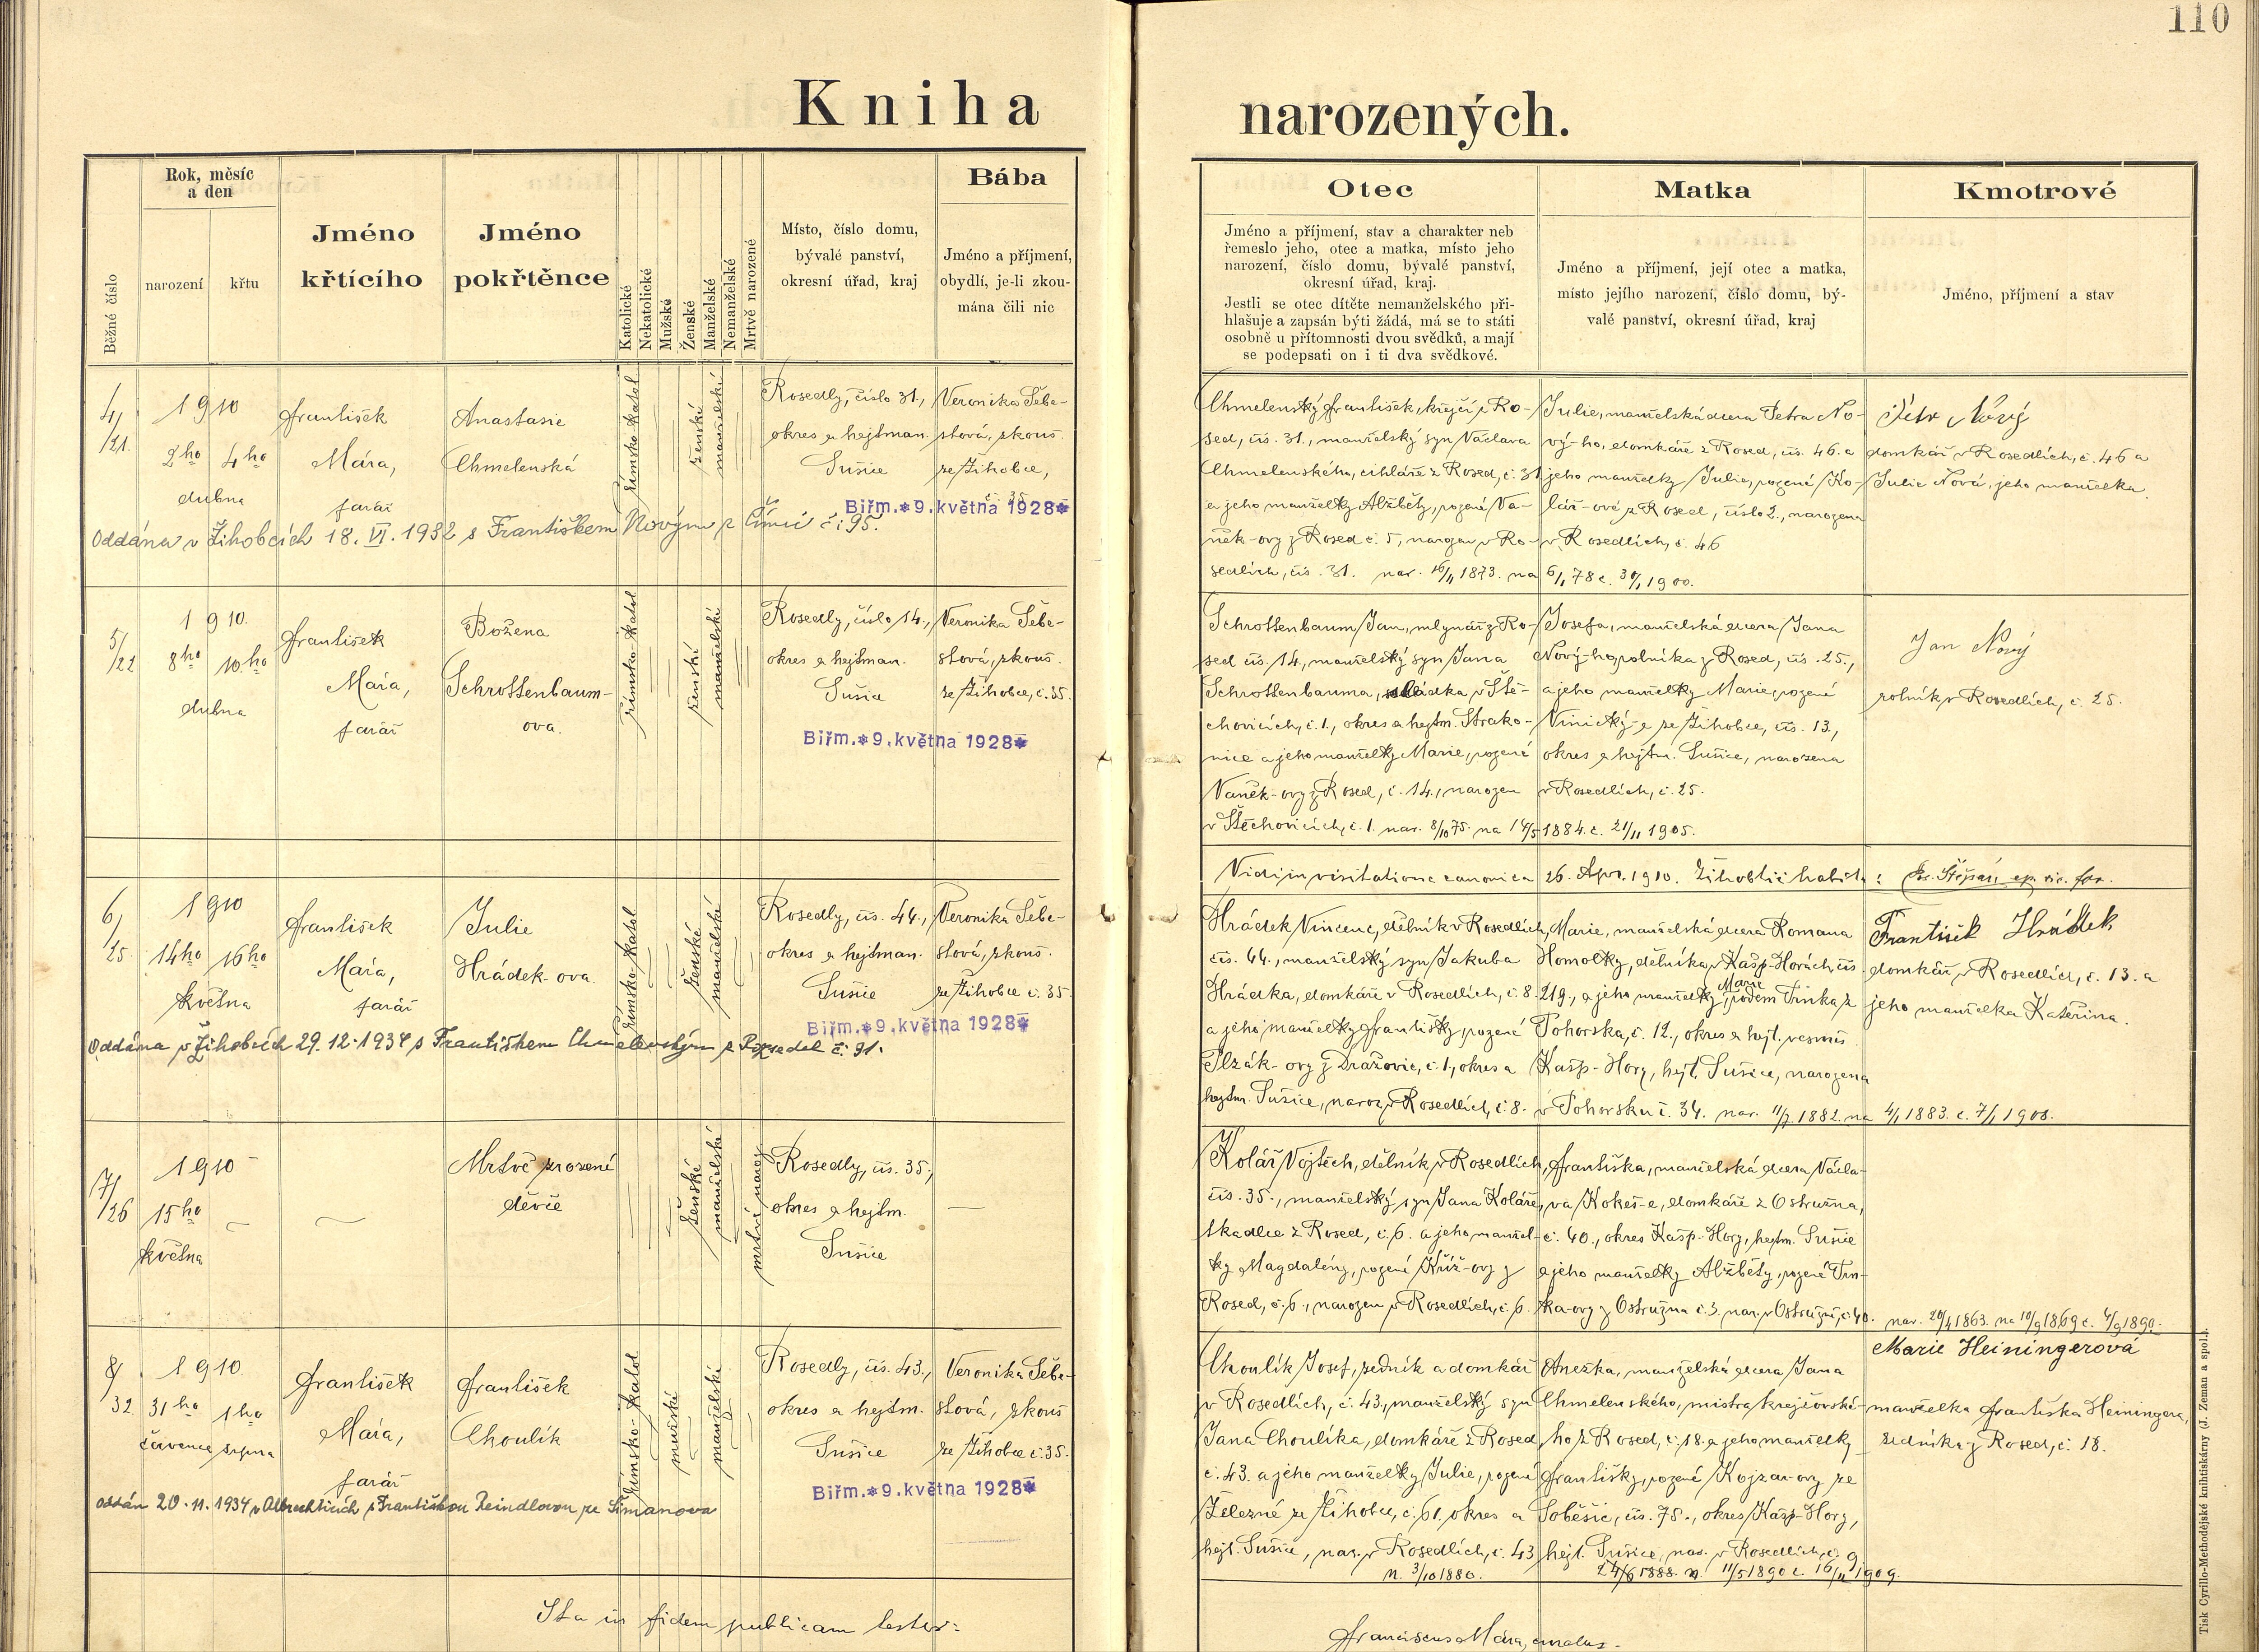 110
Kniha narozených.
Běžné číslo
Rok, měsíc
a den
narození
křtu
Jméno
křtícího
Jméno
pokřtěnce
Katolické
Nekatolické
Mužské
Ženské
Manželské
Nemanželské
Mrtvě narozené
Místo, číslo domu,
bývalé panství,
okresní úřad, kraj
Bába
Jméno a příjmení,
obydlí, je-li zkou-
mána čili nic
Otec
Jméno a příjmení, stav a charakter neb
řemeslo jeho, otec a matka, místo jeho
narození, číslo domu, bývalé panství,
okresní úřad, kraj.
Jestli se otec dítěte nemanželského při-
hlašuje a zapsán býti žádá, má se to státi
osobně u přítomnosti dvou svědků, a mají
se podepsati on i ti dva svědkové.
Matka
Jméno a příjmení, její otec a matka,
místo jejího narození, číslo domu, bý-
valé panství, okresní úřad, kraj
Kmotrové
Jméno, příjmení a stav
4/21.
1910
2ho
4ho
dubna
František
Mára,
farář
Anastasie
Chmelenská
římsko-katol
ženské
manželské
Rosedly, číslo 31.,
okres a hejtman.
Sušice
Veronika Šebe-
stová, zkouš.
ze Žihobce,
č. 35
Biřm.*9.května 1928*
Oddána v Žihobcích 18. VI. 1932 s Františkem Novým z Čímic č. 95.
Chmelenský František, krejčí z Ro-
sed, čís. 31., manželský syn Václava
Chmelenského, cihláře z Rosed, č. 31
a jeho manželky Alžběty, rozené Va-
něk-ovy z Rosed č. 5, narozen v Ro-
sedlích, čís. 31. nar. 16/11 1873. na
Julie, manželská dcera Petra No-
vý-ho, domkáře z Rosed, čís. 46. a
jeho manželky Julie, rozené Ko-
lář-ové z Rosed, číslo 2., narozena
v Rosedlích, č. 46
6/1 78 c. 30/1 1900.
Petr Nový
domkář v Rosedlích, č. 46 a
Julie Nová, jeho manželka.
5/22
1910.
8ho
10.ho
dubna
František
Mára,
farář
Božena
Schrottenbaum-
ova.
římsko-katol
ženské
manželské
Rosedly, číslo 14.,
okres a hejtman.
Sušice
Veronika Šebe-
stová, zkouš.
ze Žihobce, č. 35.
Biřm.*9.května 1928*
Schrottenbaum Jan, mlynář z Ro-
sed čís. 14., manželský syn Jana
Schrottenbauma, sládka v Ště-
chovicích, č. 1., okres a hejtm. Strako-
nice a jeho manželky Marie, rozené
Vaněk-ovy z Rosed, č. 14., narozen
v Štěchovicích, č. 1. nar. 8/10 75. na
Josefa, manželská dcera Jana
Nový-ho, rolníka z Rosed, čís. 25.,
a jeho manželky Marie, rozené
Vinický-e ze Žihobce, čís. 13.,
okres a hejtm. Sušice, narozena
v Rosedlích, č. 25.
14/5 1884. c. 21/11 1905.
Jan Nový
rolník v Rosedlích, č. 25.
Vidi in visitatione canonica 26. Apr. 1910.
6/25.
1910
14ho
16ho
května
František
Mára,
farář
Julie
Hrádek-ova.
římsko-katol
ženské
manželské
Rosedly, čís. 44.,
okres a hejtman.
Sušice
Veronika Šebe-
stová, zkouš.
ze Žihobce č. 35.
Biřm.*9.května 1928*
Oddána v Žihobcích 29. 12. 1934 s Františkem Chmelenským z Rozsedel č. 91.
Hrádek Vincenc, dělník v Rosedlích,
čís. 44., manželský syn Jakuba
Hrádka, domkáře v Rosedlích, č. 8.
a jeho manželky Františky, rozené
Plzák-ovy z Dražovic, č. 1., okres a
hejtm. Sušice, naroz. v Rosedlích, č. 8.
Marie, manželská dcera Romana
Homolky, dělníka v Kašp-Horách, čís.
219., a jeho manželky Marie, rodem Trnka z
Pohorska, č. 12., okres a hejt.
Kašp-Hory, hejt. Sušice, narozena
v Pohorsku č. 34. nar. 11/7. 1882. na 4/1 1883. c. 7/1 1908.
František Hrádek
domkář v Rosedlích, č. 13. a
jeho manželka Kateřina.
7/26
1910
15ho
května
Mrtvě zrozené
děvče
ženské
manželské
mrtvě naroz.
Rosedly, čís. 35.,
okres a hejtm.
Sušice
Kolář Vojtěch, dělník v Rosedlích,
čís. 35., manželský syn Jana Koláře,
tkadlce z Rosed, č. 6. a jeho manžel-
ky Magdalény, rozené Kříž-ovy z
Rosed, č. 6., narozen v Rosedlích, č. 6.
Františka, manželská dcera Václa-
va Kokeš-e, domkáře z Ostružna,
č. 40., okres Kašp-Hory, hejtm. Sušice
a jeho manželky Alžběty, rozené Trn-
ka-ovy z Ostružna č. 3. nar. v Ostružně, č. 40.
nar. 20/4 1863. na 10/9 1869 c. 4/9 1890.
8/32.
1910.
31ho
1ho
července
srpna
František
Mára,
farář
František
Choulík
římsko-katol
mužské
manželské
Rosedly, čís. 43.,
okres a hejtm.
Sušice
Veronika Šebe-
stová, zkouš
ze Žihobce č. 35.
Biřm.*9.května 1928*
oddán 20. 11. 1934 v Albrechticích s Františkou Reindlovou ze Šimanova
Choulík Josef, zedník a domkář
v Rosedlích, č. 43., manželský syn
Jana Choulíka, domkáře z Rosed
č. 43. a jeho manželky Julie, rozené
Železné ze Žihobce, č. 61, okres a
hejt. Sušice, nar. v Rosedlích, č. 43
n. 3/10 1880.
Anežka, manželská dcera Jana
Chmelenského, mistra krejčovské-
ho z Rosed, č. 18. a jeho manželky
Františky, rozené Kojzar-ovy ze
Soběšic, čís. 75., okres Kašp-Hory,
hejt. Sušice, nar. v Rosedlích, č. 9
24/6 1888. n. 11/5 1890 c. 16/11 1909.
Marie Heiningerová
manželka Františka Heiningera,
zedníka z Rosed, č. 18.
Ita in fidem publicam testor:
Franciscus Mára, curatus.
Tisk Cyrillo-Methodějské knihtiskárny (J. Zeman a spol.).